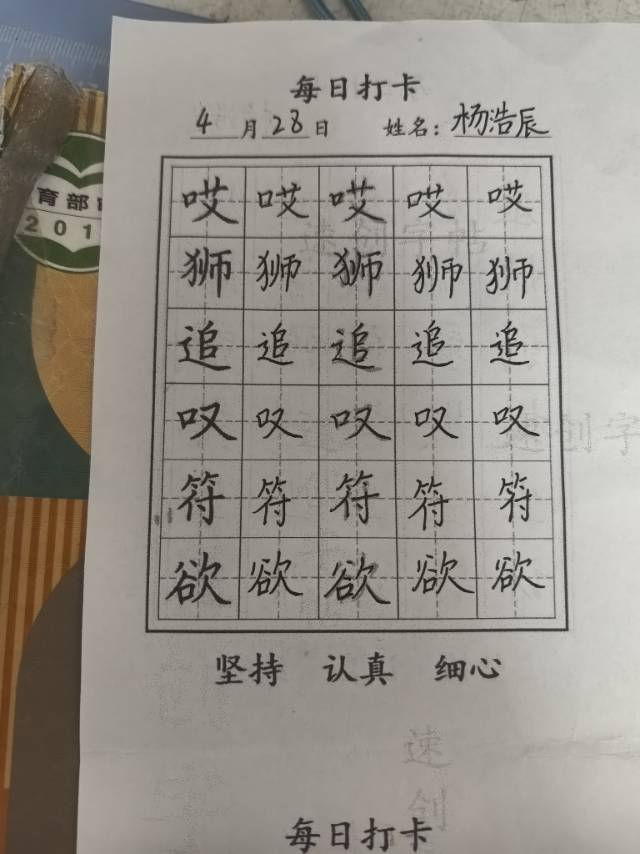 每日打卡
4月28日 姓名：杨浩辰
哎哎哎哎哎
狮狮狮狮狮
追追追追追
叹叹叹叹叹
符符符符符
欲欲欲欲欲
坚持 认真 细心
每日打卡
育部
201
速创字帖
速创字
速
创